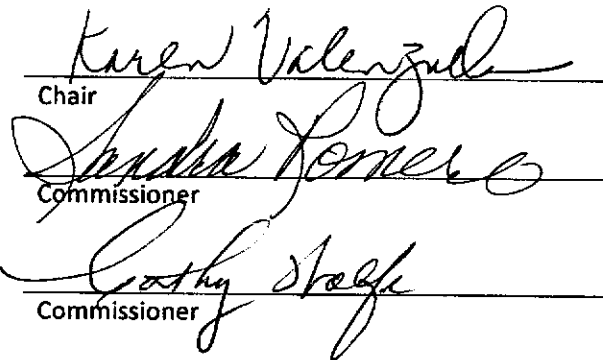 Karen Valenzuela
Chair
Sandra Romero
Commissioner
Cathy Wolfe
Commissioner